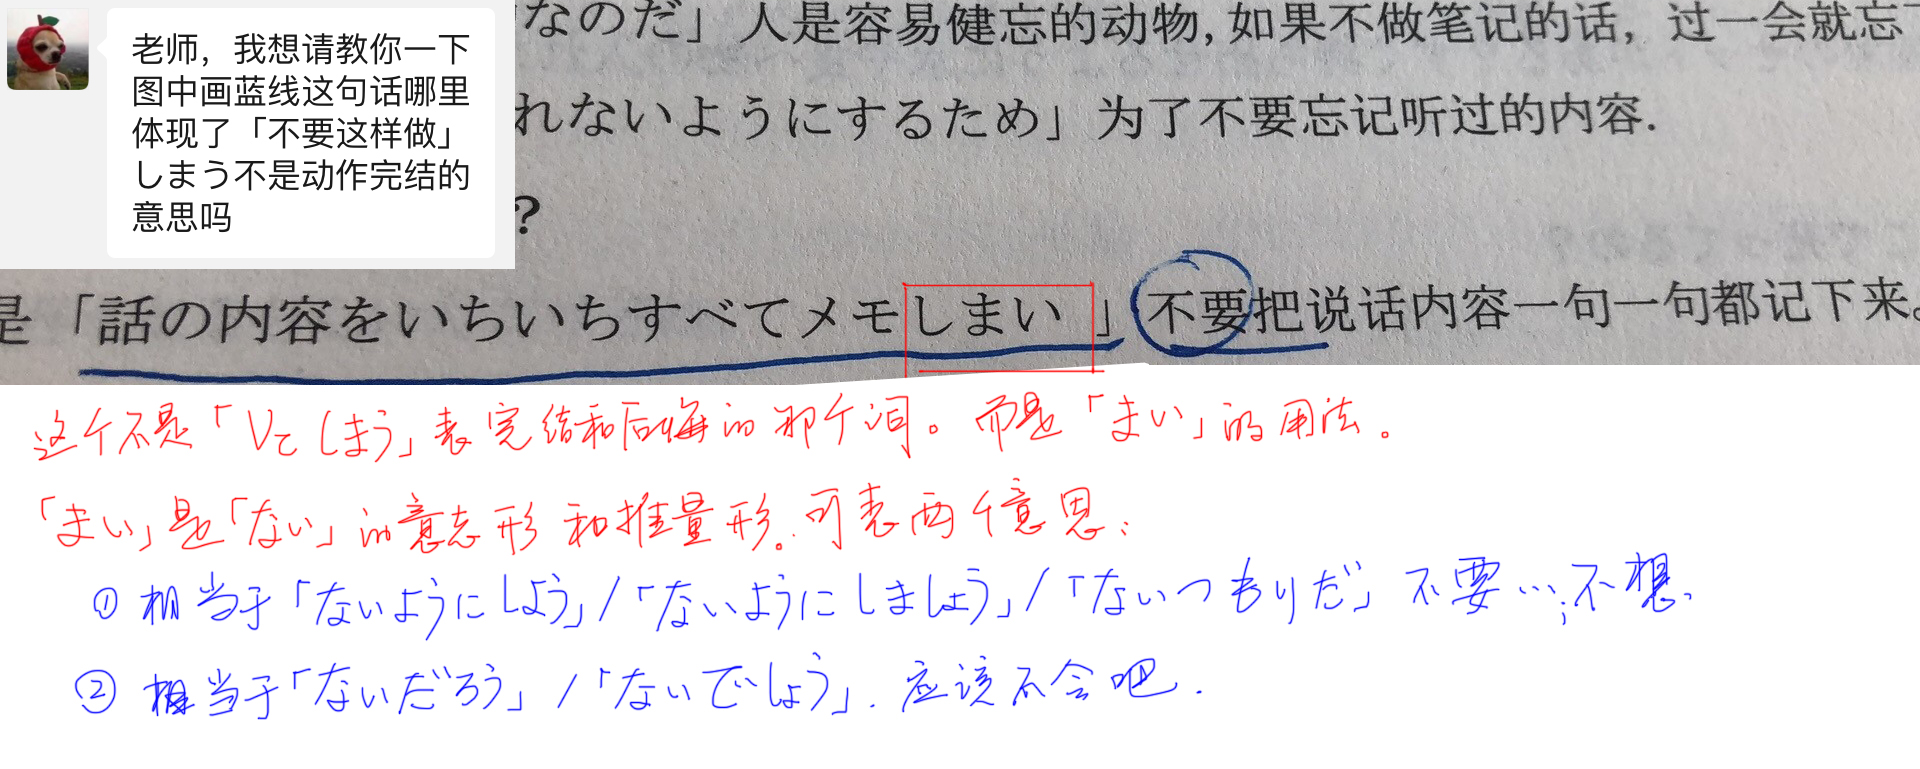 老师，我想请教你一下
图中画蓝线这句话哪里
体现了「不要这样做」
しまう不是动作完结的
意思吗
なのだ」人是容易健忘的动物，如果不做笔记的话，过一会就忘
れないようにするため」为了不要忘记听过的内容.
?
是「話の内容をいちいちすべてメモしまい」不要把说话内容一句一句都记下来。
这个不是「Vてしまう」表完结和后悔的那个词。而是「まい」的用法。
「まい」是「ない」的意志形和推量形。可表两个意思：
① 相当于「ないようにしよう」/「ないようにしましょう」/「ないつもりだ」不要…；不想.
② 相当于「ないだろう」/「ないでしょう」. 应该不会吧.